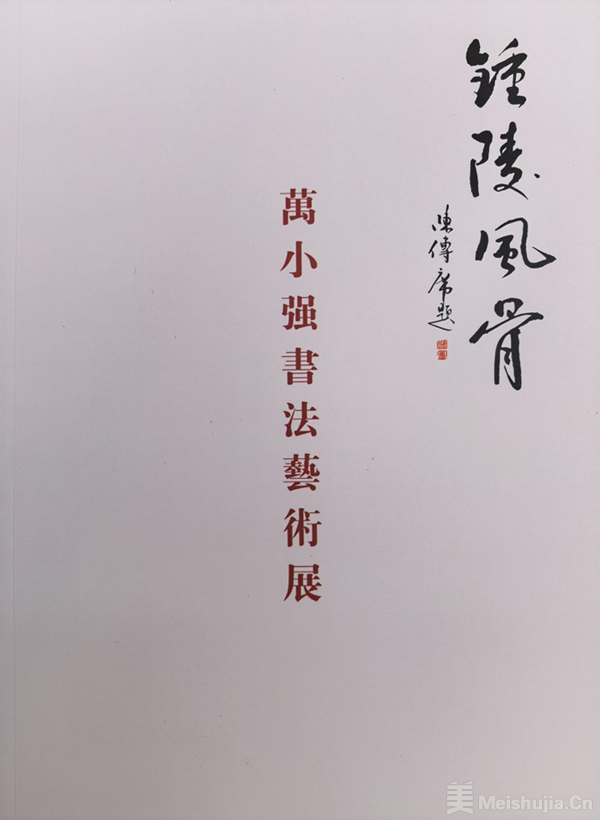 鍾陵風骨
陳傳席題
萬小强書法藝術展
美 Meishujia.Cn